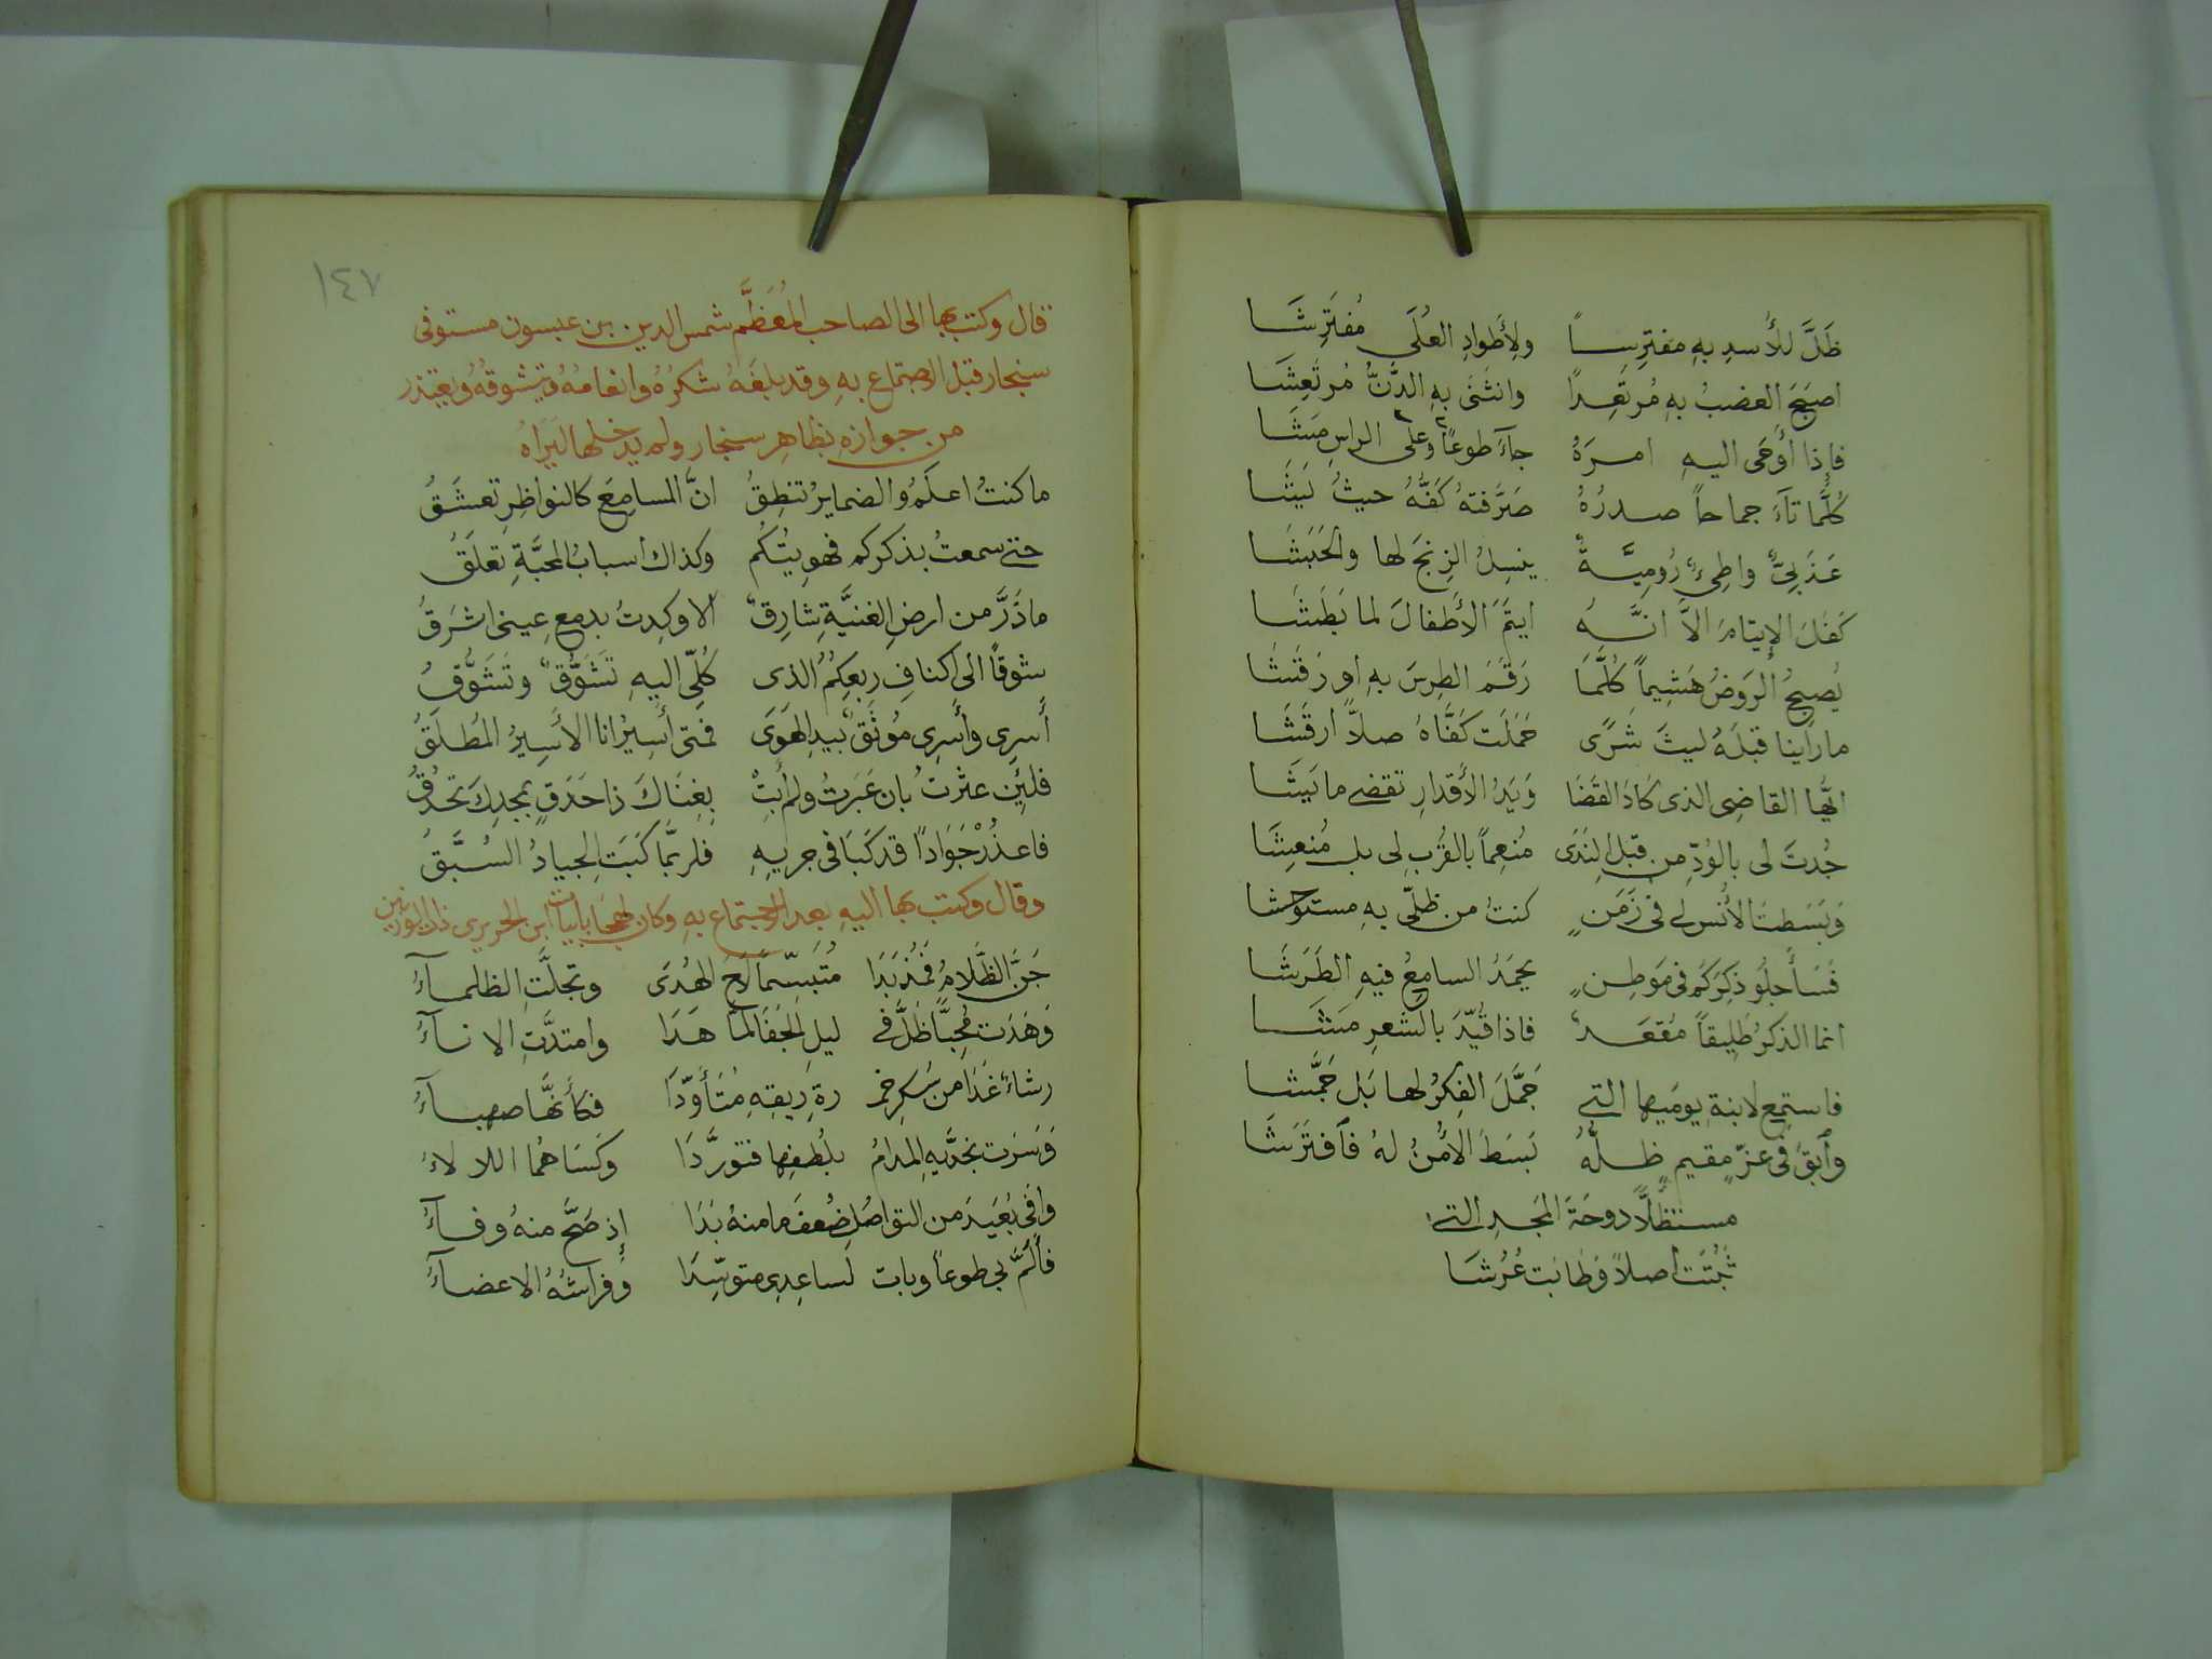 ظَلَّ للأُسدِ بهِ مفترِساً ولِأَطوادِ العُلَى مُفتَرِشَا
اصبَحَ العضبُ بهِ مُرتَعِداً وانثَنَى بهِ الدَّنُّ مُرتَعِشَا
فإِذا أَوحَى اليهِ امرَهُ جآءَ طوعًا وعلى الراسِ مَشَا
كُلَّما تآءَ جماحاً صدرُهُ صَرَّفتهُ كَفُّهُ حيثُ يَشَا
عَذَبيٌّ واطِيءٌ رُومِيَّةً ينسِلُ الزِنجَ لها والحَبَشَا
كَفَلَ الإِيتامَ الاَّ انَّهُ ايتَمَ الأَطفالَ لما بَطَشَا
يُصبحُ الرَوضُ هَشيماً كُلَّمَا رَقَمَ الطِرسَ بهِ او رَقَشَا
ما رأَينا قبلَهُ ليثَ شَرًى حَمَلَت كَفَّاهُ صلاًّ ارقَشَا
ايُّها القاضِي الذى كادَ القَضَا وَيَدُ الأَقدارِ تقضى ما يَشَا
جُدتَ لى بالوُدِّ من قبلِ النِدَى مُنعِماً بالقُربِ لى بل مُنعِشَا
وَبَسَطتَ الأُنس لى فى زَمَنٍ كنتُ من ظلّى بهِ مستوحشا
فَسَأَجلُو ذِكرَكُم فى مَوطِنٍ يحمَدُ السامِعُ فيهِ الطَرَشَا
انما الذكرُ طَلِيقاً مُقعَدٌ فاذا قُيِّدَ بالشعرِ مَشَا
فاستمِع لابنةِ يومَيها التى جَمَّلَ الفِكرُ لها بَل جَمَّشا
وٱبقَ فى عزٍّ مقيمٍ ظلُّهُ بَسَطَ الأَمنُ لهُ فٱفتَرَشَا
مستظلاًّ دوحَةَ المَجدِ التى
ثَبُتَت اصلاً وَطابَت عُرُشَا
١٤٧
قال وكتب بها الى الصاحب المُعَظَّم شمس الدين بن عبسون مستوفى
سنجار قبل الاجتماع بهِ وقد بلغَهُ شكرُهُ وانعامهُ ويتشوقهُ ويعتذر
من جوازهِ بظاهِرِ سنجار ولم يدخلها ليَراهُ
ما كنتُ اعلَمُ والضمايرُ تنطِقُ انَّ المسامِعَ كالنواظِرِ تعشَقُ
حتى سمعتُ بذكركم فهويتُكُم وكذاك اسبابُ المحبَّةِ تعلَقُ
ما ذَرَّ من ارضِ الغنيَّةِ شارِقٌ الا وكِدتُ بدمعِ عينى اشرَقُ
شوقاً الى اكنافِ ربعِكُمُ الذى كُلّى اليهِ تَشَوُّقٌ وتَشَوُّفُ
أَسرِى وأَسرِى مُوثَقٌ بيدِ الهَوَى فمتى أَسِيرُ انا الأَسِيرُ المُطلَقُ
فلئِن عثرتُ بان عَبَرتُ ولم أَبِتْ بِغِنَاكَ ذا حَدَقٍ بمجدِكَ تحدُقُ
فاعذُرْ جَوَاداً قد كَبَا فى جريِهِ فلربَّما كَبَتِ الجيادُ السُبَّقُ
وقال وكتب بها اليهِ بعد الاجتماع بهِ وكان لهجًا بأبيات ابن الحريرى ذات الوزنين
جَنَّ الظَّلامُ فَمُذ بَدَا مُتَبَسِّماً لاحَ الهُدَى وتجلَّتِ الظلمآءُ
وَهَدَت مُحِبًّا ظَلَّ فى ليلِ الجَفَا لما هَدَا وامتدَّتِ الانآءُ
رشاءٌ غَدَا من سُكرِ خمرةِ رِيقِهِ مُتَأَوِّدَا فكأَنَّها صهبآءُ
وَسَرَت بخدَّيهِ المدامُ بلُطفِها فتورَّدَا وكَسَاهُما اللالاءُ
وافى بُعَيدَ من التواصُلِ ضُعفَ ما منهُ بَدَا إِذ صَحَّ منهُ وفآءُ
فأَلَمَّ بي طوعاً وبات لساعِدِى متوسِّدَا وَفراشُهُ الاعضآءُ